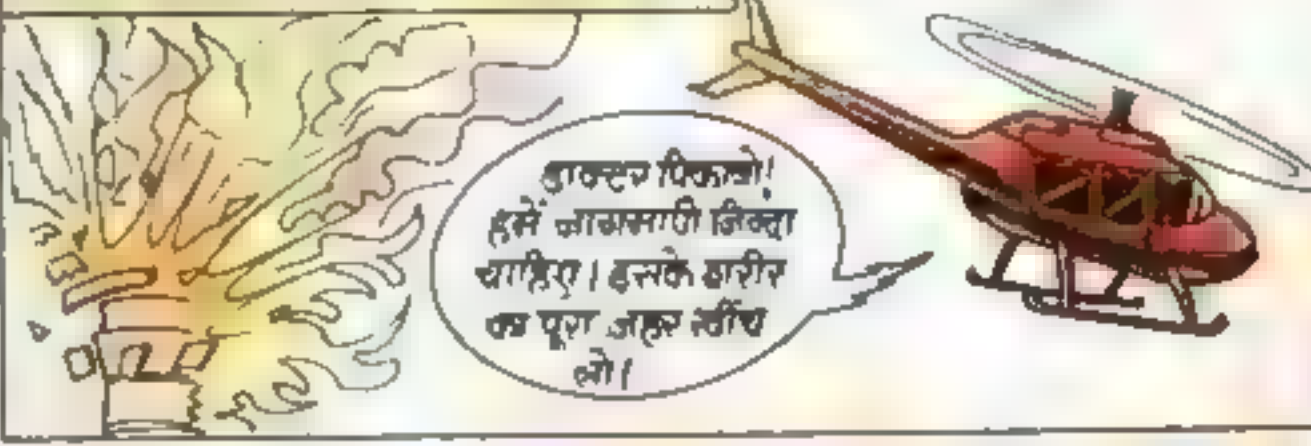 डाक्टर पिकाचो!
हमें नागासापी जिन्दा
चाहिए। इसके शरीर
का पूरा जहर खींच
लो।